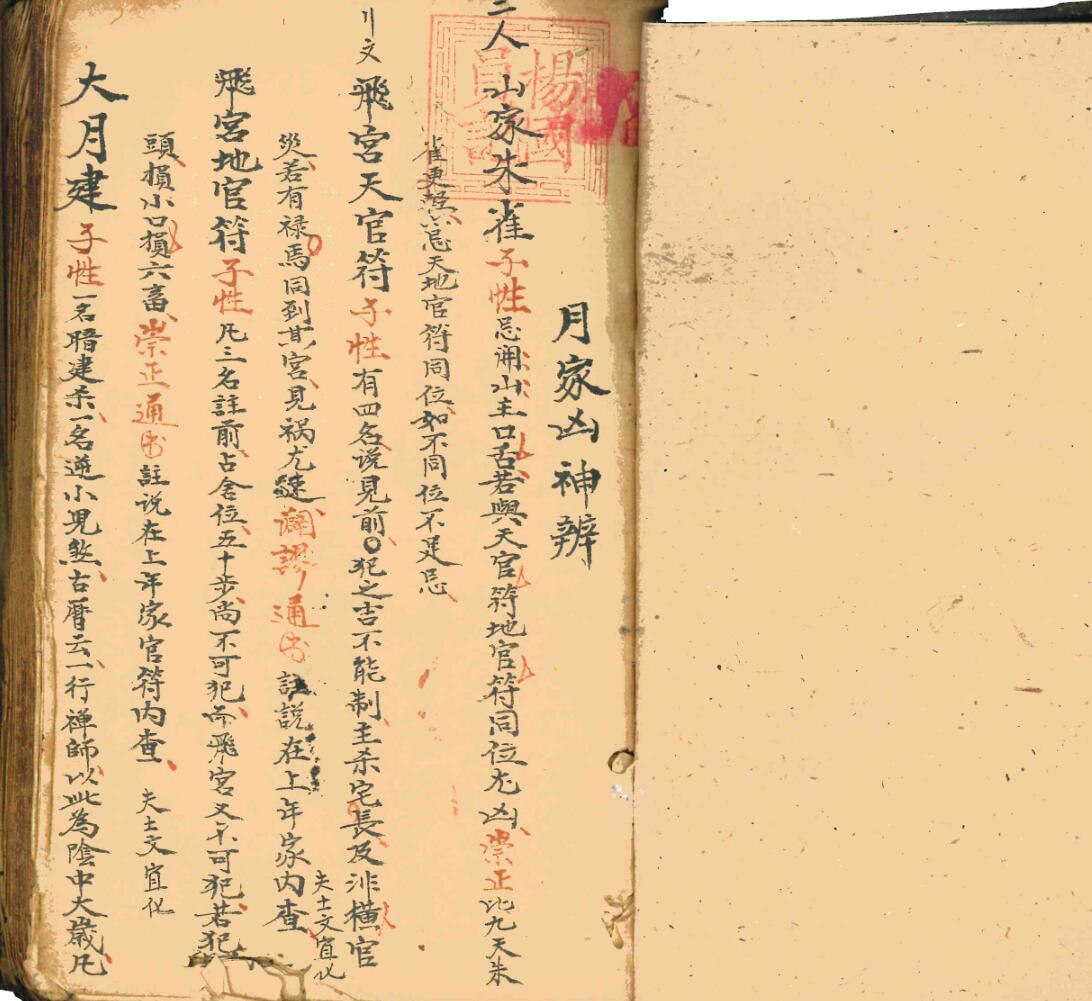 月家凶神辨
二人 山家朱雀子性忌開山主口舌若與天官符地官符同位尤凶崇正比九天朱
雀更忌天地官符同位如不同位不足忌
飛宮天官符子性有四名説見前犯之吉不能制主杀宅長及非橫官
災若有禄馬同到其宮見祸尤速闢謬通书註説在上年家内查 夫士文宜化
飛宮地官符子性凡三名註前占舍位五十步尚不可犯而飛宮又不可犯若犯
頭損小口損六畜崇正通书註说在上年家官符内查 夫士文宜化
大月建子性一名暗建杀一名逆小兒煞古曆云一行禅師以此為陰中大歲凡
楊國